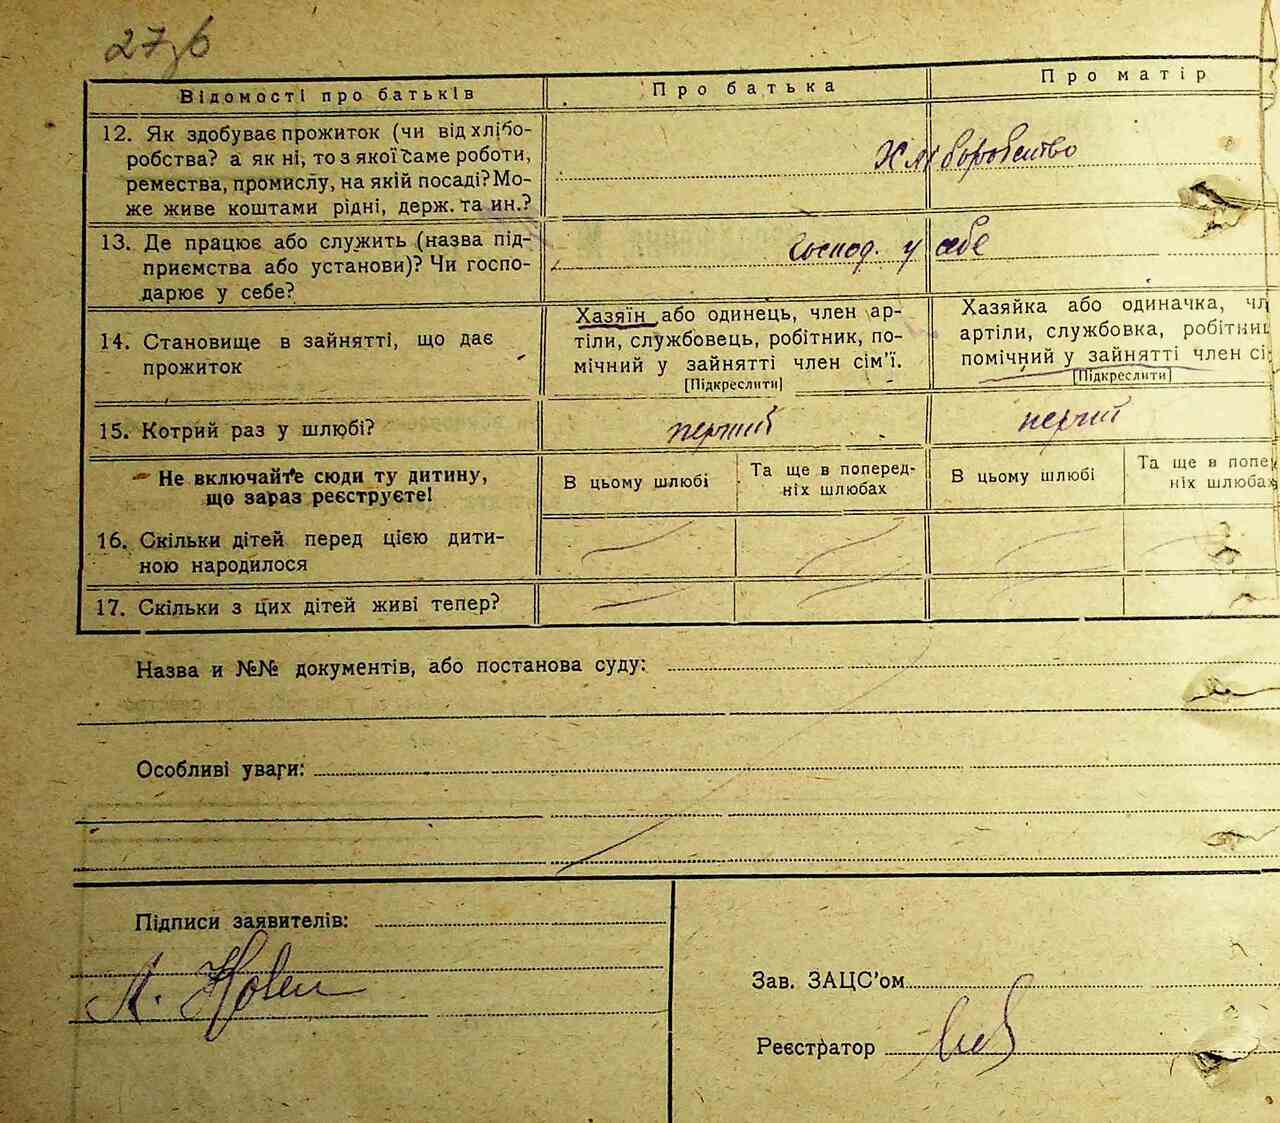 27зв
Відомості про батьків
Про батька
Про матір
12. Як здобуває прожиток (чи від хлібо-
робства? а як ні, то з якої саме роботи,
ремества, промислу, на якій посаді? Мо-
же живе коштами рідні, держ. та ин.?
Хліборобство
13. Де працює або служить (назва під-
приємства або установи)? Чи госпо-
дарює у себе?
Господ. у себе
14. Становище в зайнятті, що дає
прожиток
Хазяїн або одинець, член ар-
тіли, службовець, робітник, по-
мічний у зайнятті член сім'ї.
[Підкреслити]
Хазяйка або одиначка, чл
артіли, службовка, робітниц
помічний у зайнятті член сі
[Підкреслити]
15. Котрий раз у шлюбі?
перший
перший
Не включайте сюди ту дитину,
що зараз реєструєте!
В цьому шлюбі
Та ще в поперед-
ніх шлюбах
В цьому шлюбі
Та ще в попе
ніх шлюбах
16. Скільки дітей перед цією дити-
ною народилося
17. Скільки з цих дітей живі тепер?
Назва и №№ документів, або постанова суду:
Особливі уваги:
Підписи заявителів:
Зав. ЗАЦС'ом
Реєстратор